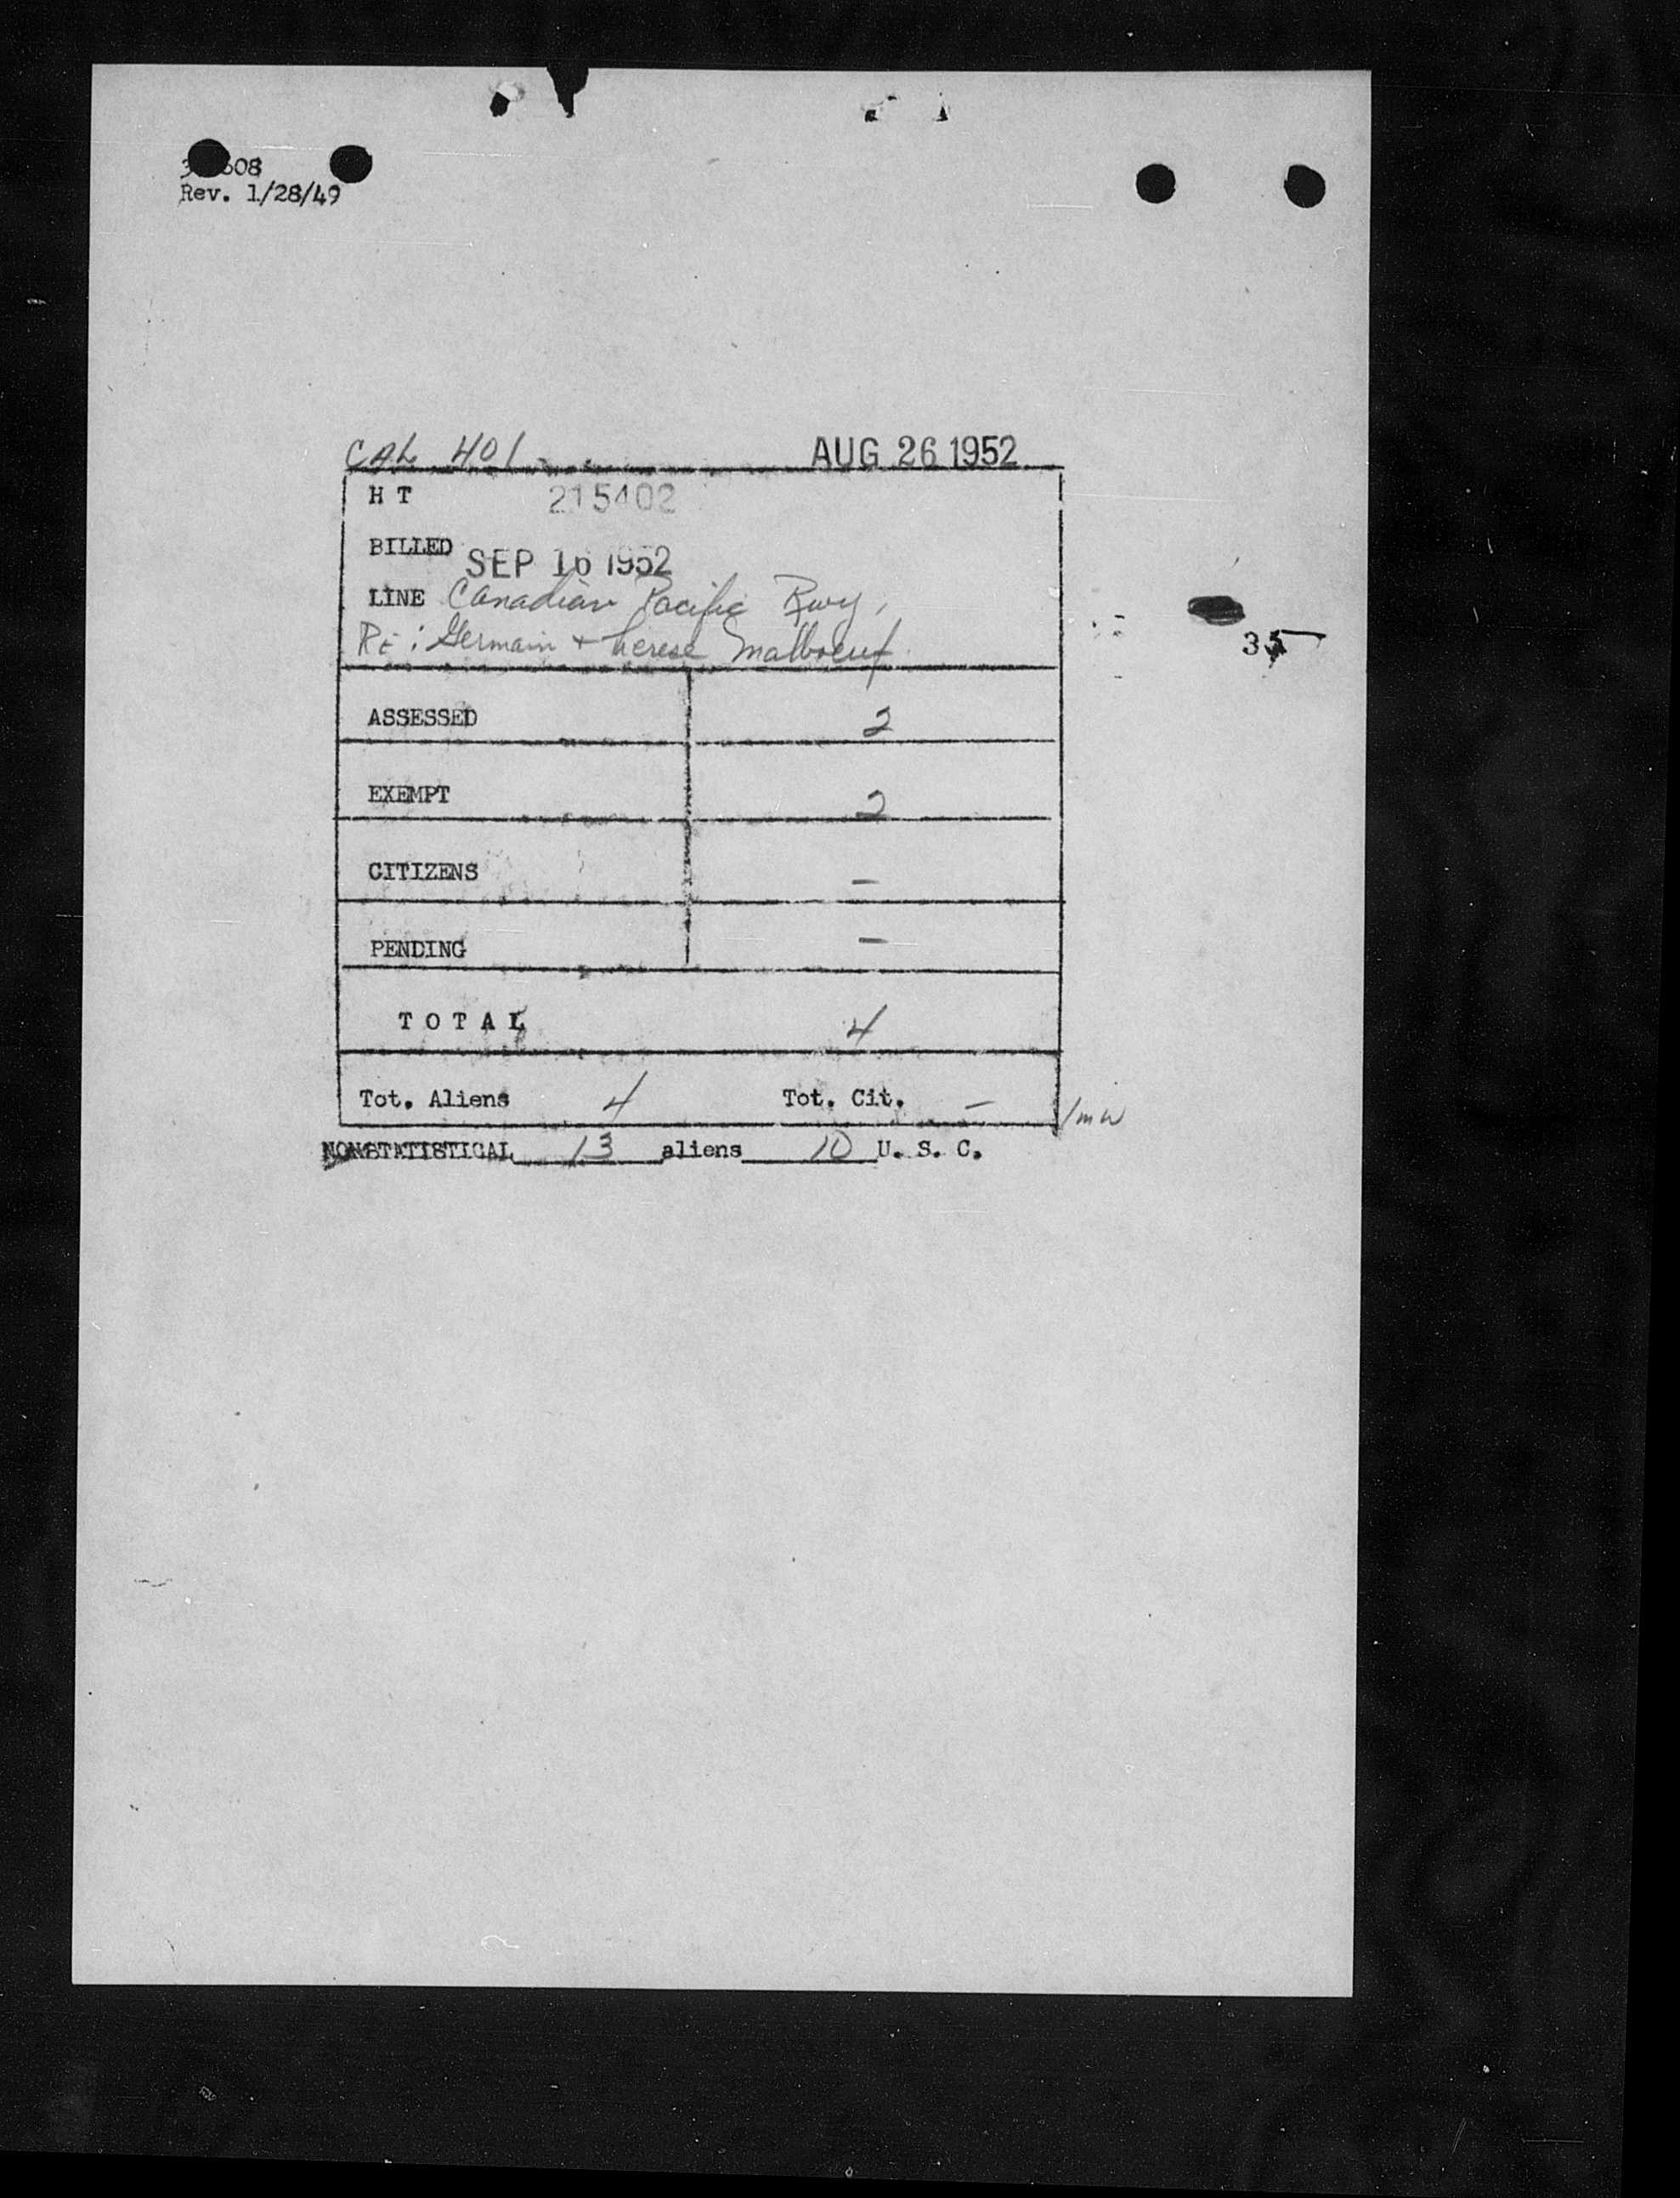 Rev. 1/28/49
CAL 401 AUG 26 1952
H T 215402
BILLED SEP 16 1952
LINE Canadian Pacific Rwy,
Re: Germain + Therese Malboeuf
35
ASSESSED 2
EXEMPT 2
CITIZENS –
PENDING –
T O T A L 4
Tot. Aliens 4 Tot. Cit. – /mw
NONSTATISTICAL 13 aliens 10 U. S. C.